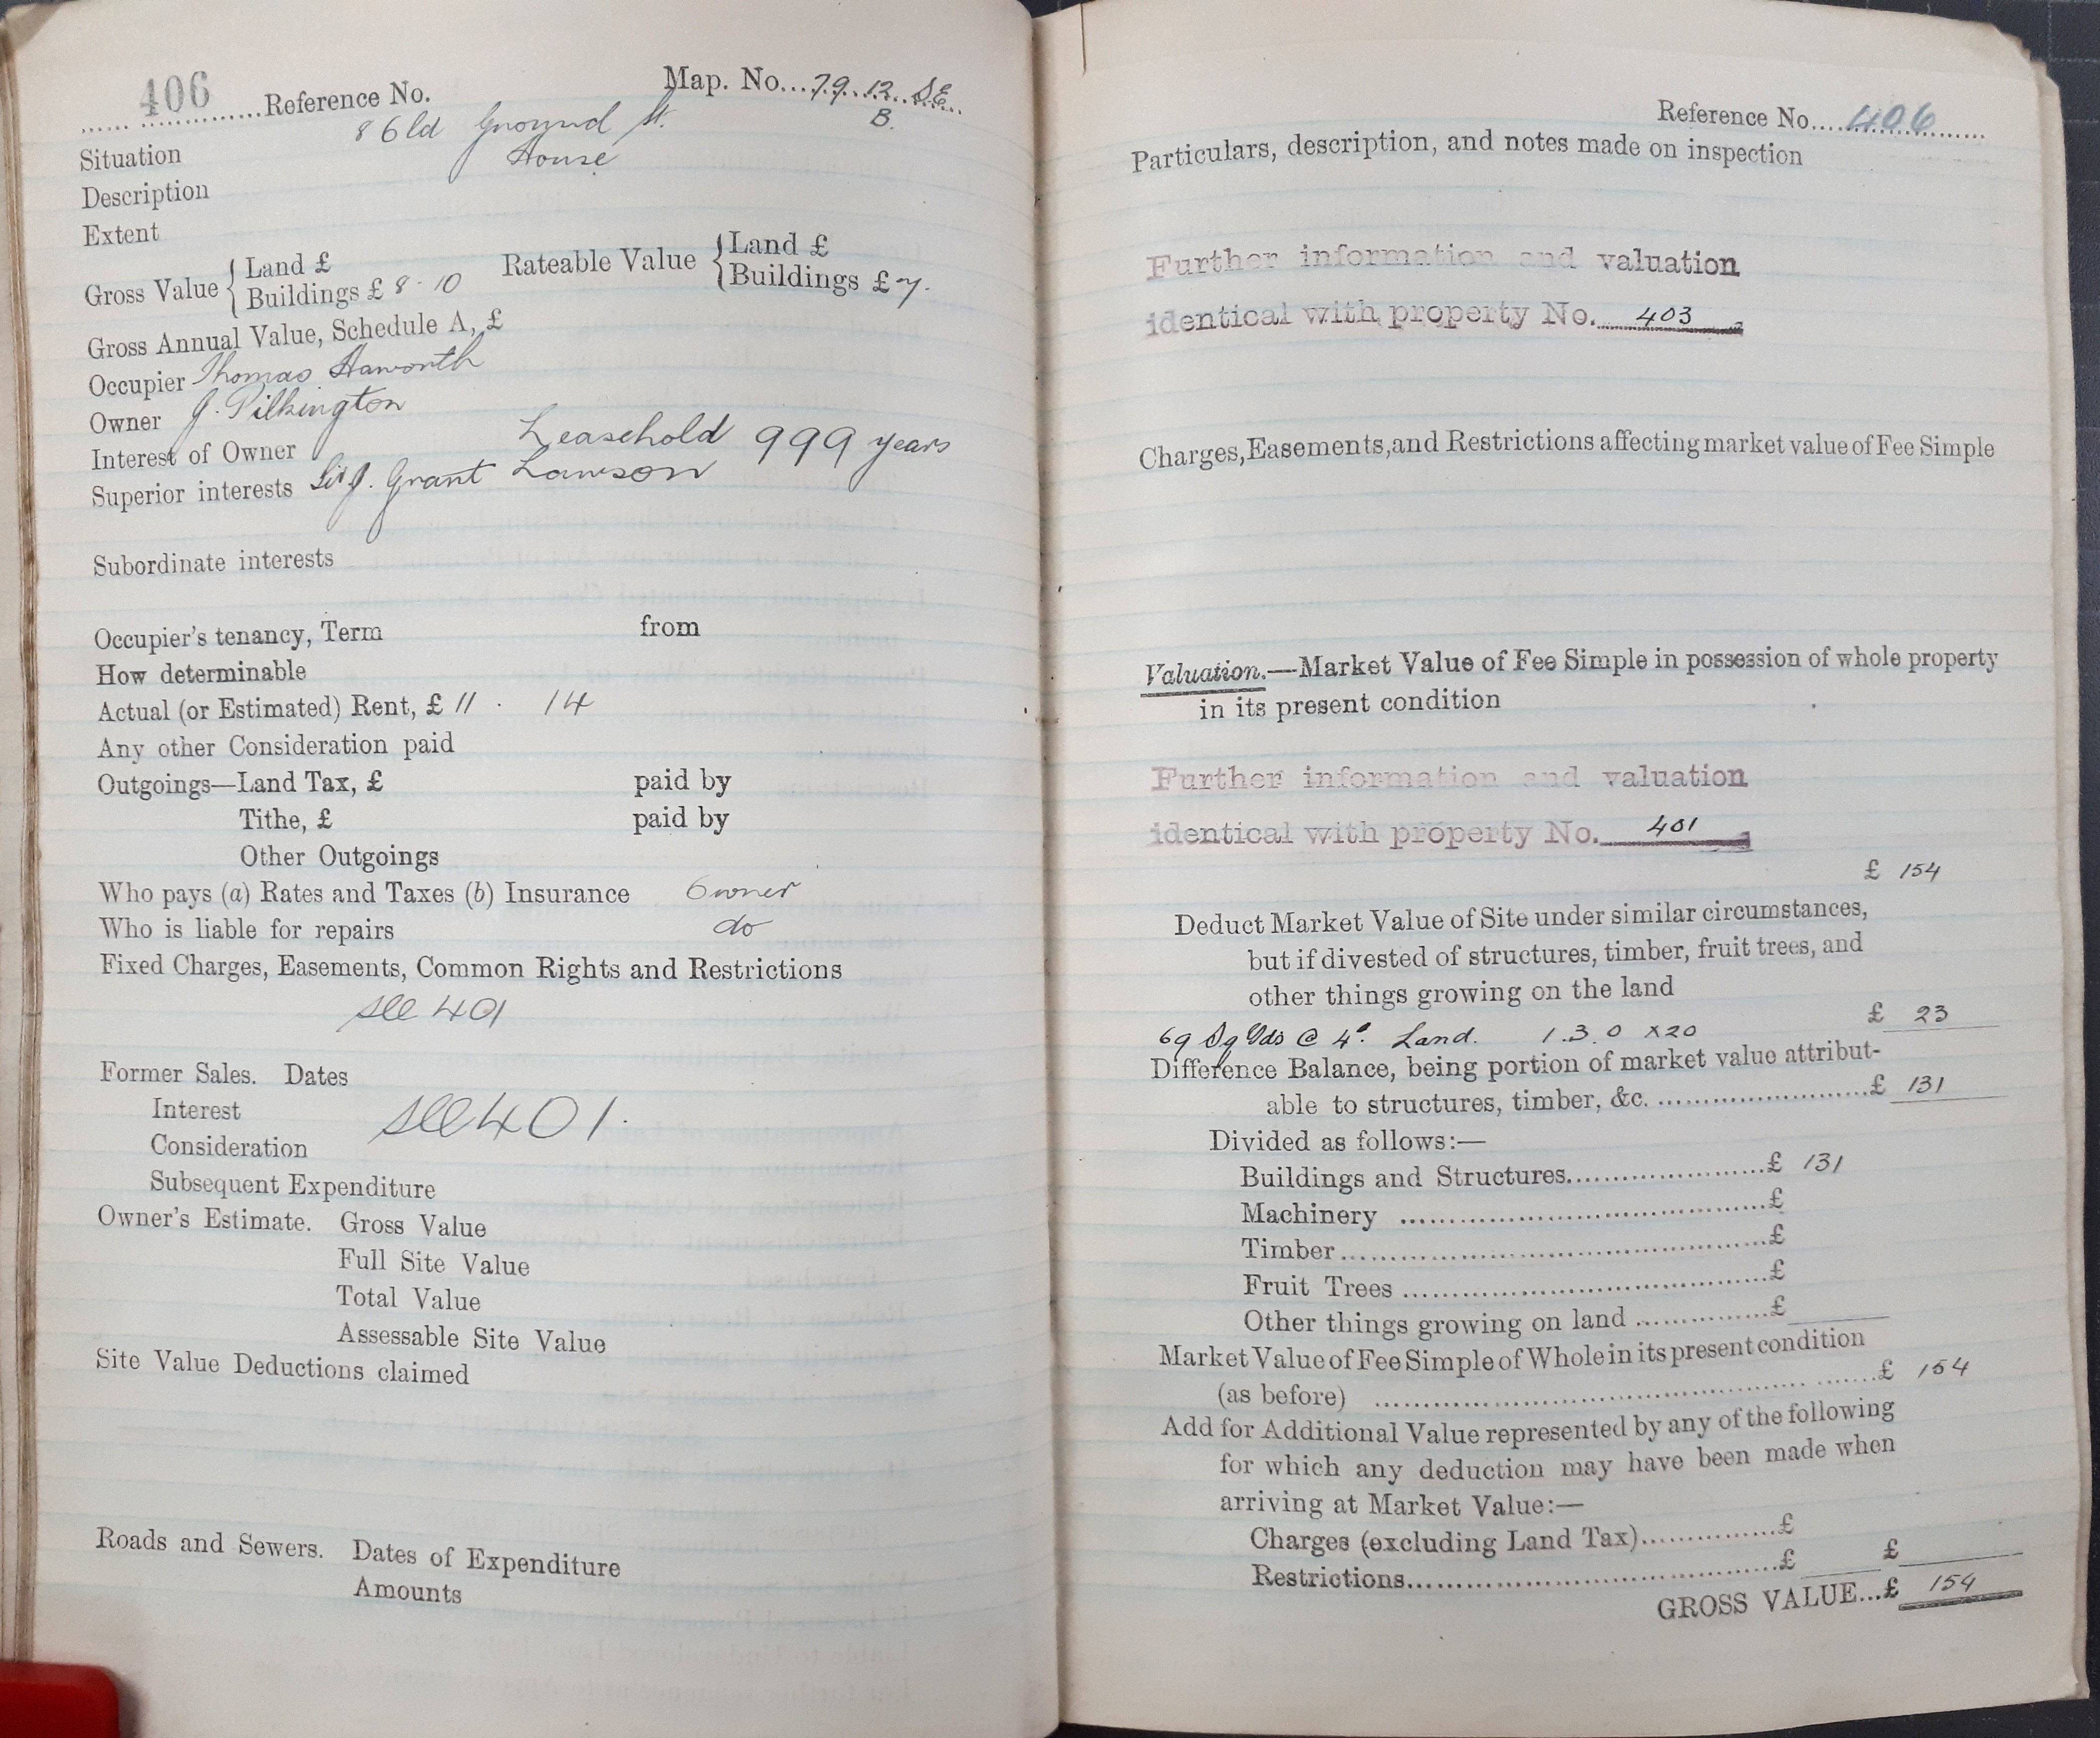 406 Reference No. Map. No. 79. 12. S.E.
B.
Situation 8 Old Ground St.
Description House
Extent
Gross Value { Land £ Rateable Value { Land £
Buildings £ 8 - 10 Buildings £ 7.
Gross Annual Value, Schedule A, £
Occupier Thomas Haworth
Owner J. Pilkington
Interest of Owner Leasehold 999 years
Superior interests Sir J. Grant Lawson
Subordinate interests
Occupier's tenancy, Term from
How determinable
Actual (or Estimated) Rent, £ 11 . 14
Any other Consideration paid
Outgoings—Land Tax, £ paid by
Tithe, £ paid by
Other Outgoings
Who pays (a) Rates and Taxes (b) Insurance Owner
Who is liable for repairs do
Fixed Charges, Easements, Common Rights and Restrictions
see 401
Former Sales. Dates
Interest see 401.
Consideration
Subsequent Expenditure
Owner's Estimate. Gross Value
Full Site Value
Total Value
Assessable Site Value
Site Value Deductions claimed
Roads and Sewers. Dates of Expenditure
Amounts
Reference No. 406
Particulars, description, and notes made on inspection
Further information and valuation
identical with property No. 403
Charges, Easements, and Restrictions affecting market value of Fee Simple
Valuation.—Market Value of Fee Simple in possession of whole property
in its present condition
Further information and valuation
identical with property No. 401
£ 154
Deduct Market Value of Site under similar circumstances,
but if divested of structures, timber, fruit trees, and
other things growing on the land
£ 23
69 Sq Yds @ 4d. Land. 1.3.0 x20
Difference Balance, being portion of market value attribut-
able to structures, timber, &c. £ 131
Divided as follows:—
Buildings and Structures £ 131
Machinery £
Timber £
Fruit Trees £
Other things growing on land £
Market Value of Fee Simple of Whole in its present condition
(as before) £ 154
Add for Additional Value represented by any of the following
for which any deduction may have been made when
arriving at Market Value:—
Charges (excluding Land Tax) £
Restrictions £ £
GROSS VALUE...£ 154